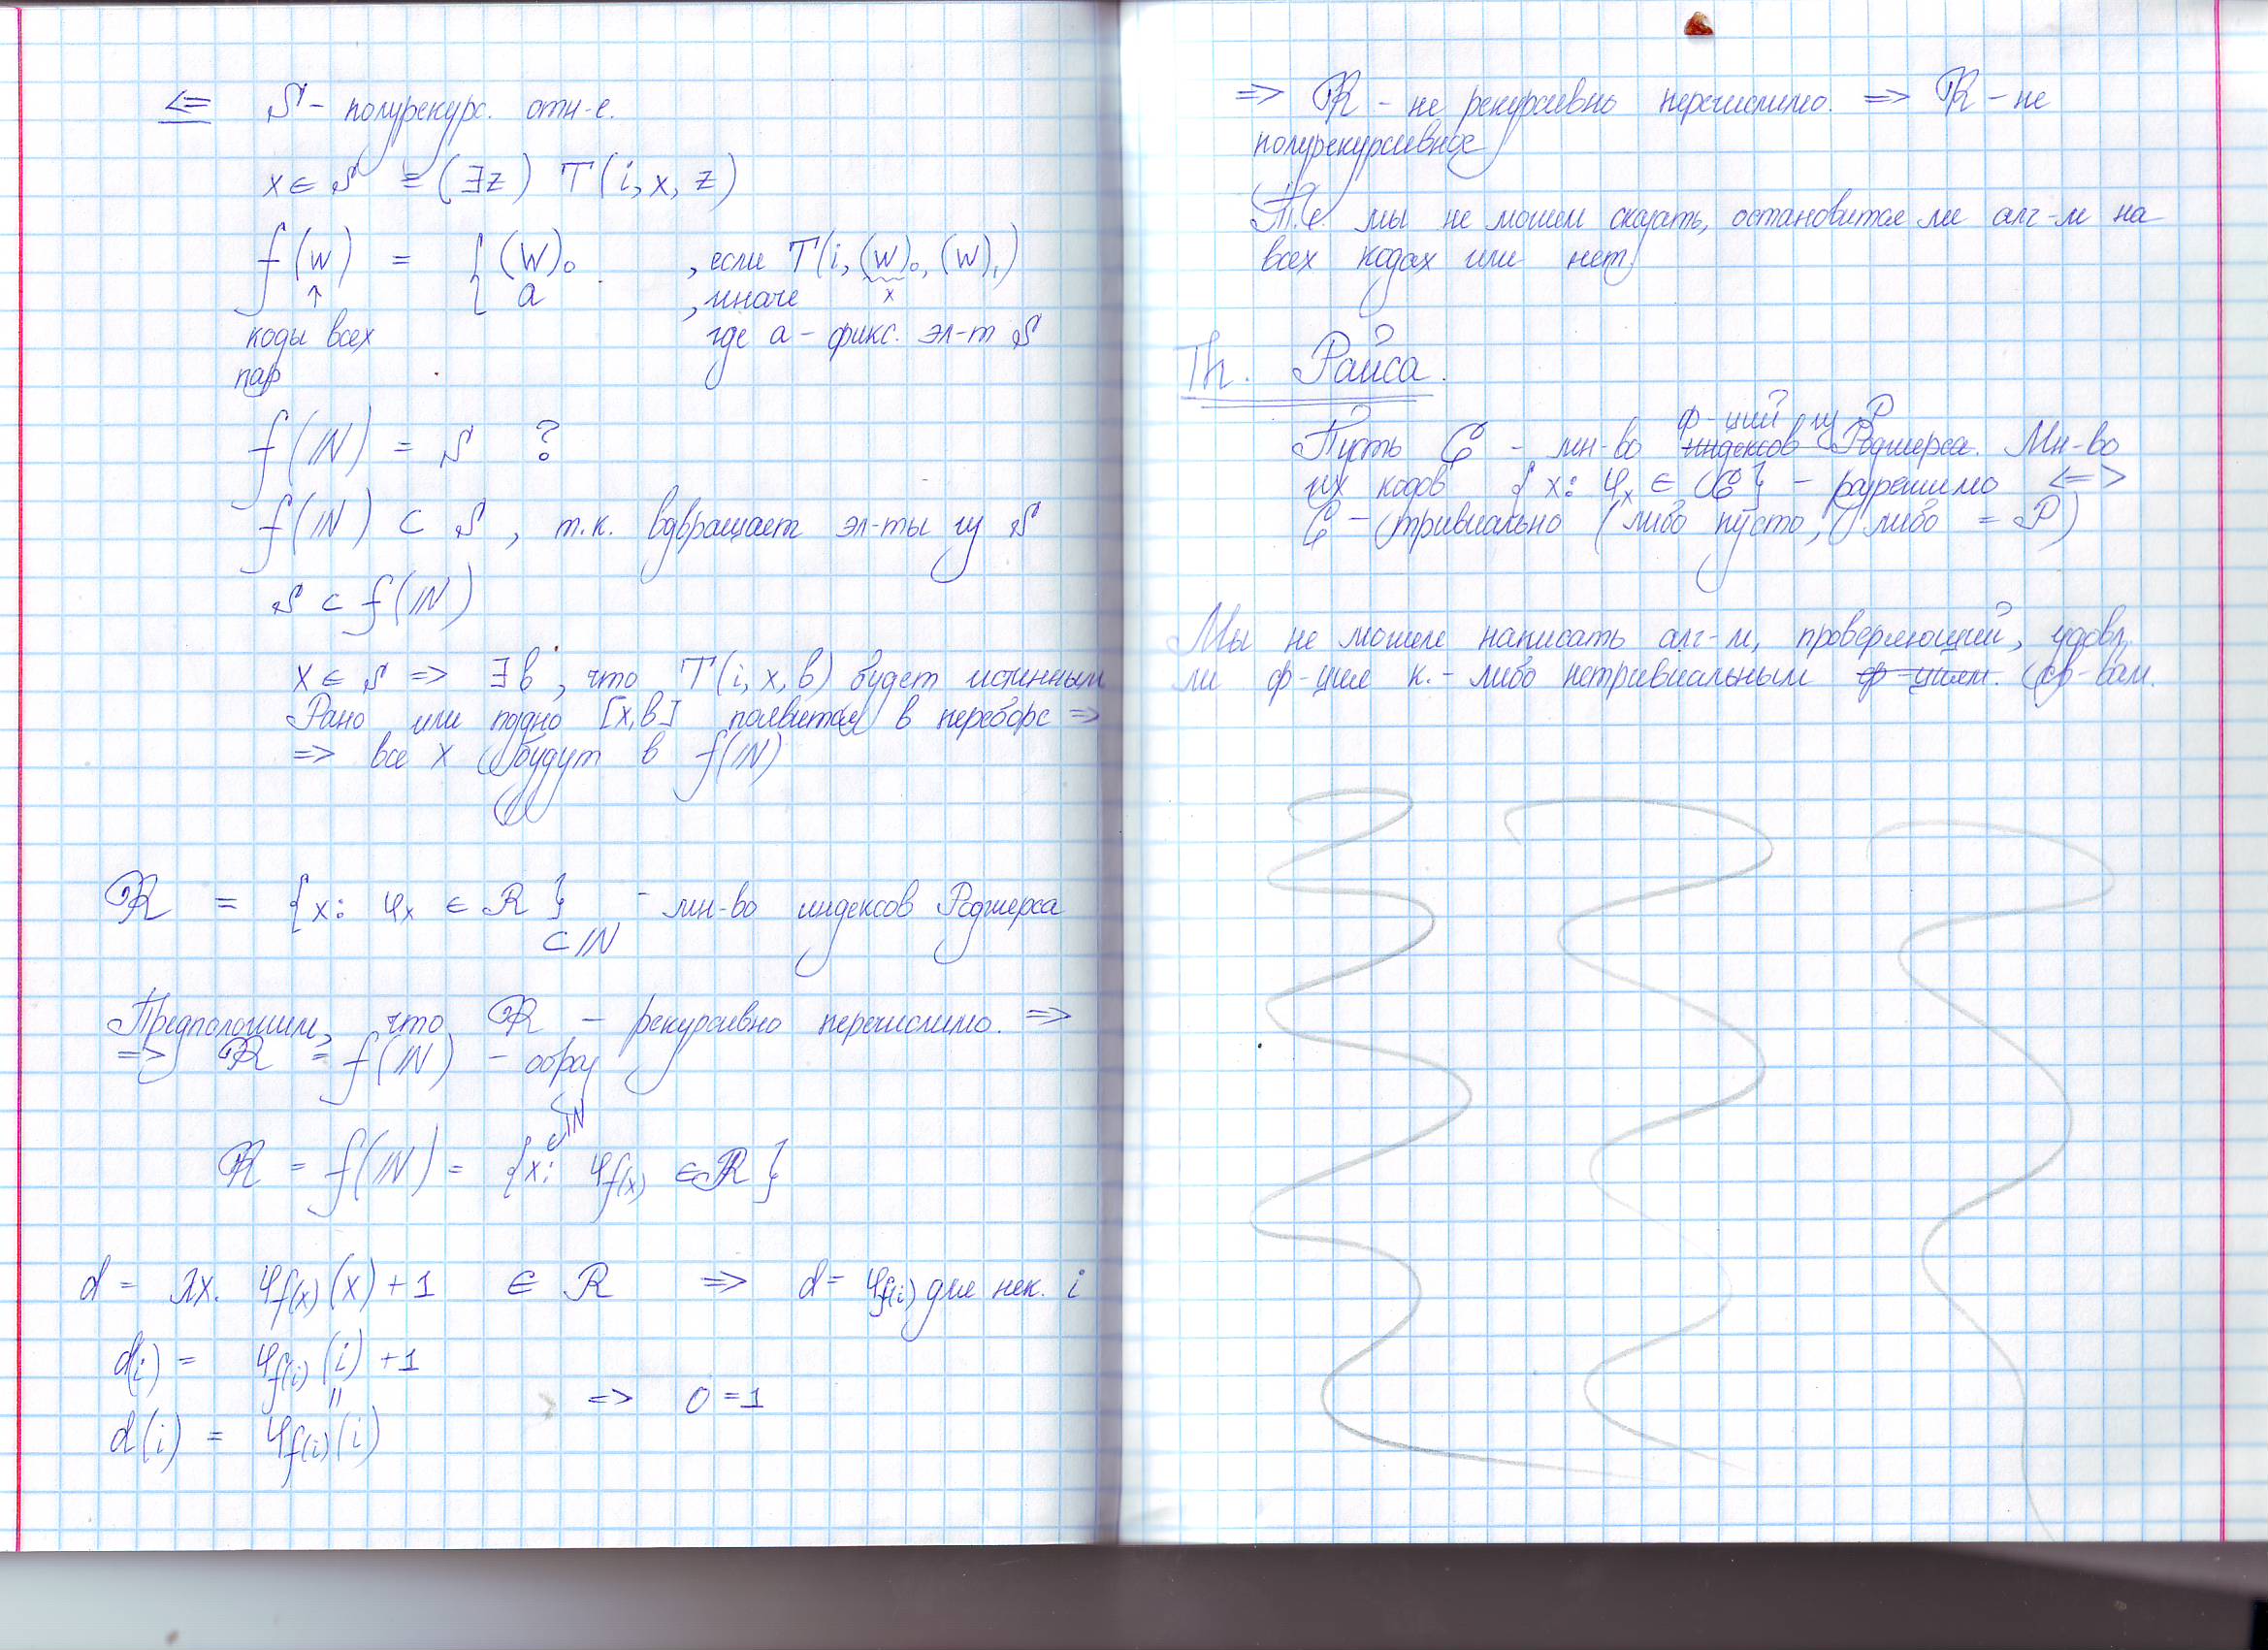 <= S - полурекурс. отн-е.
x ∈ S ≡ (∃z) T(i, x, z)
f(w) = { (w)₀ , если T(i, (w)₀, (w)₁)
↑ a , иначе x
коды всех где a - фикс. эл-т S
пар
f(ℕ) = S ?
f(ℕ) ⊂ S, т.к. возвращает эл-ты из S
S ⊂ f(ℕ)
x ∈ S => ∃ b, что T(i, x, b) будет истинным
Рано или поздно [x, b] появится в переборе =>
=> все x будут в f(ℕ)
ℝ = {x: φₓ ∈ R} - мн-во индексов Роджерса
⊂ ℕ
Предположим, что ℝ - рекурсивно перечислимо. =>
=> ℝ = f(ℕ) - образ
∈ℕ
ℝ = f(ℕ) = {x: φ_f(x) ∈ R}
d = λx. φ_f(x)(x) + 1 ∈ R => d = φ_f(i) для нек. i
d(i) = φ_f(i)(i) + 1
=> 0 = 1
d(i) = φ_f(i)(i)
=> ℝ - не рекурсивно перечислимо. => ℝ - не
полурекурсивное
Т.е. мы не можем сказать, остановится ли алг-м на
всех кодах или нет.
Th. Райса.
ф-ций из P
Пусть C - мн-во индексов Роджерса. Мн-во
их кодов {x: φₓ ∈ C} - разрешимо <=>
C - тривиально (либо пусто, либо = P)
Мы не можем написать алг-м, проверяющий, удовл.
ли ф-ция к.-либо нетривиальным ф-циям. св-вам.